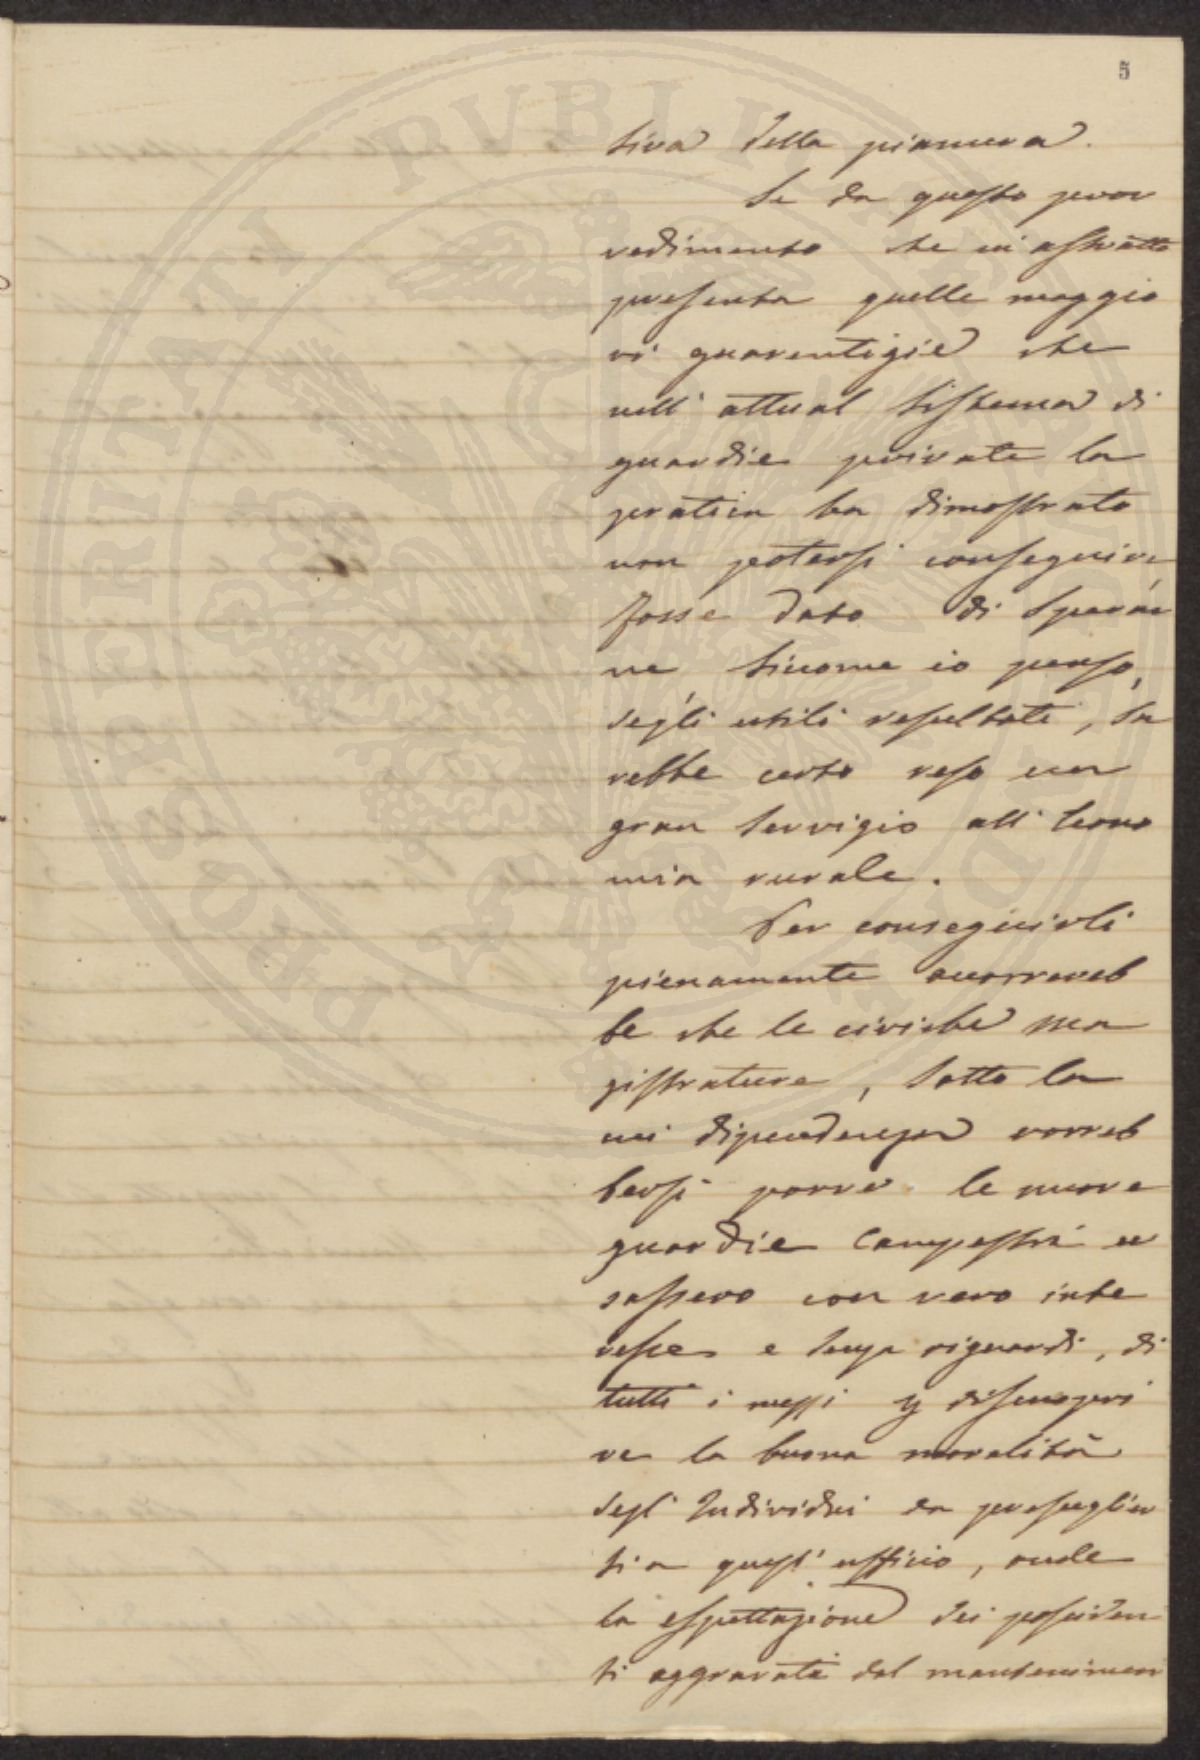 5
tiva della primiera.
Se da questo prov
vedimento che in astratto
presenta quelle maggio
ri guarentigie che
nell'attual sistema di
guardie private la
pratica ha dimostrato
non potersi conseguire
fosse dato di sperar
ne siccome io penso,
degli utili resultati, sa
rebbe certo reso un
gran servigio all'econo
mia rurale.
Per conseguirli
pienamente occorrereb
be che le civiche ma
gistrature, sotto la
cui dipendenza vorreb
bersi porre le nuove
guardie Campestri u
sassero con vero inte
resse e senza riguardi, di
tutti i mezzi p discuopri
re la buona moralità
degl'Individui da presceglier
si a quest'ufficio, onde
la espettazione dei possiden
ti aggravati del mantenimen
PROSPERITATI PVBLICAE